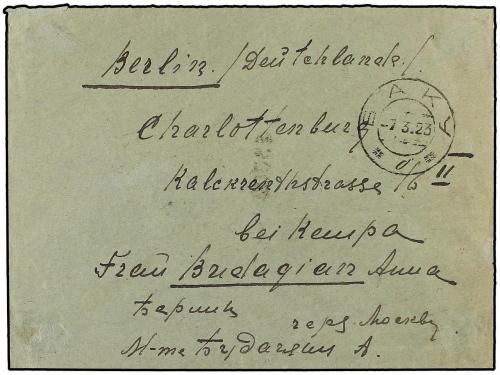 Berlin. /Deutchland./
Charlottenburg
Kalckreuthstrasse 16 II
bei Kempa
Frau Budagian Anna
Берлин
через Москву
M-me Будагиян А.
БАКУ
-7.3.23